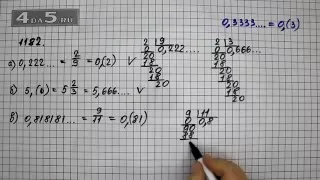 4DA5.RU
0,3333.... = 0,(3)
1182.
а) 0,222... = 2/9 = 0,(2) ∨
б) 5,(6) = 5 2/3 = 5,666.... ∨
в) 0,818181... = 9/11 = 0,(81)
2 | 9
0 | 0,222....
20
18
20
18
20
2 | 3
0 | 0,666...
20
18
20
18
20
9 | 11
0 | 0,8
90
88